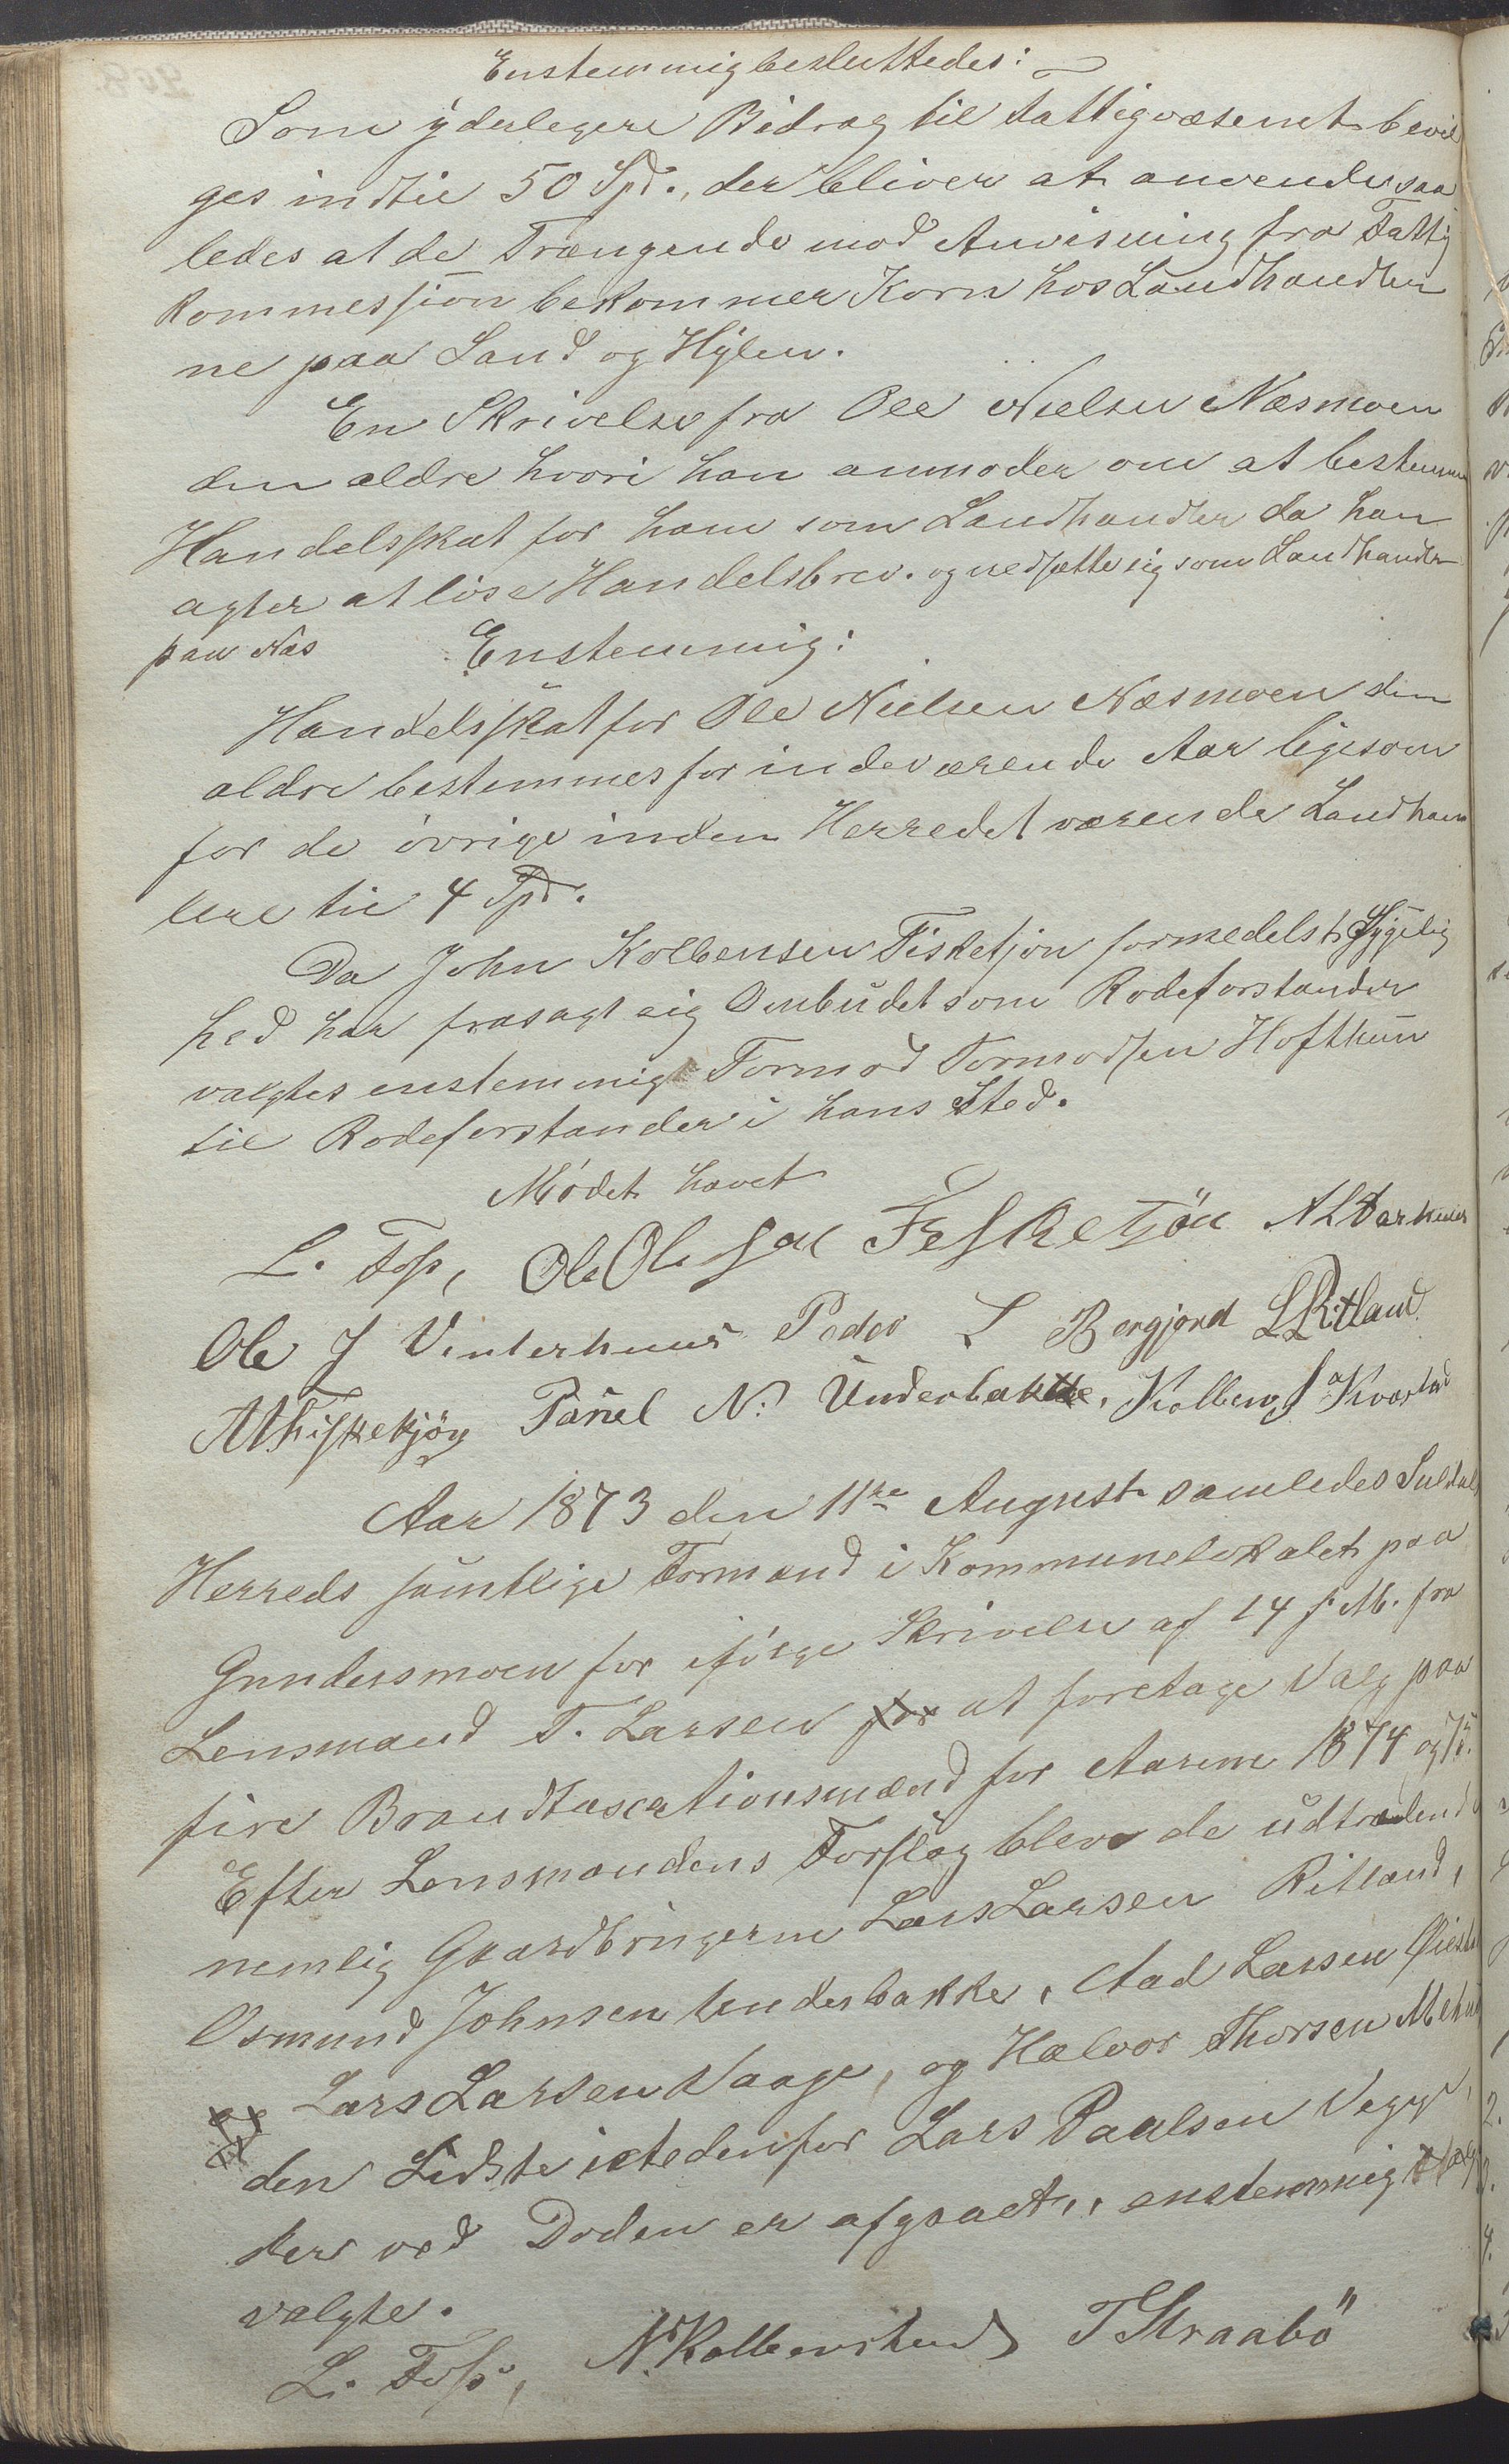 Enstemmig besluttedes:
Som yderlegere Bidrag til Fattigvæsenet bevil
ges indtil 50 Spd., der bliver at anvende saa
ledes at de Trængende mod Anvisning fra Fattig
kommessjon bekommer Korn hos Landhandler
ne paa Sand og Hylen.
En Skrivelse fra Ole Nielsen Næsmoen
den ældre hvori han anmoder om at bestemme
Handelsskat for ham som Landhandler da han
agter at löse Handelsbrev. og nedsætte sig som Landhandler
paa Næs Enstemmig:
Handelsskat for Ole Nielsen Næsmoen den
ældre bestemmes for indeværende Aar ligesom
for de övrige inden Herredet værende Landhan
lere til 4 Spd.
Da John Kolbensen Fisketjön formedelst Sygelig
hed har frasagt sig Ombudet som Rodeforstander
valgtes enstemmig Tormod Tormodsen Hofthun
til Rodeforstander i hans Sted.
Mödet hævet
L. Foss, Ole Olesen FeSketjön
Ole J Vinterhuus Peder L Bergjord LLRitland
Fisketjön Pouel N. Underbakke, Kolben Kvæstad
Aar 1873 den 11te August samledes Suldals
Herreds samtlige Formænd i Kommunelokalet paa
Gundersmoen for ifölge Skrivelse af 14 f. M. fra
Lensmand T. Larsen for at foretage Valg paa
fire Brandtaxationsmænd for Aarene 1874 og 75.
Efter Lensmandens Forslag bleve de udtrædende
nemlig Gaardbrugerne Lars Larsen Ritland,
Osmund Johnsen Underbakke, Aad Larsen
Lars Larsen Vaage, og Halvor Thorsen
den Sidste istedenfor Lars Paalsen Vegge,
der ved Doden er afgaaet, enstemmig
valgte.
L. Foss, N. Kolbenstvedt TStraabö